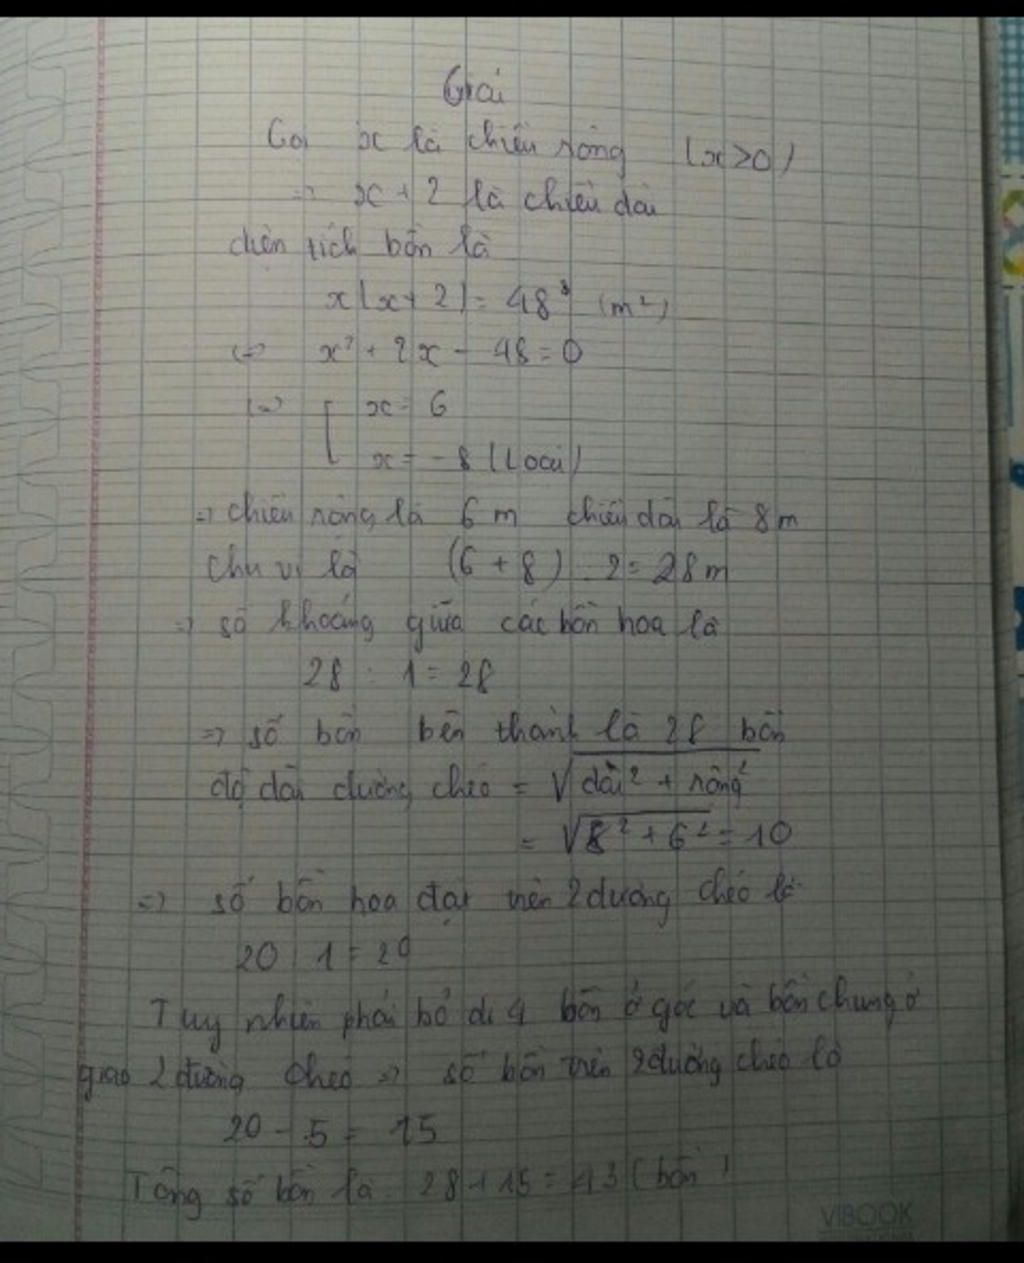 Giải
Gọi x là chiều rộng (x>0)
=> x + 2 là chiều dài
diện tích bồn là
x(x+2) = 48 (m²)
<=> x² + 2x - 48 = 0
<=> [ x = 6
x = -8 (Loại)
=> chiều rộng là 6 m chiều dài là 8m
Chu vi là (6 + 8) . 2 = 28m
=> số khoảng giữa các bồn hoa là
28 : 1 = 28
=> số bồn bên thành là 28 bồn
độ dài đường chéo = √dài² + rộng²
= √8² + 6² = 10
=> số bồn hoa đặt trên 2 đường chéo là
20 : 1 = 20
Tuy nhiên phải bỏ đi 4 bồn ở góc và bồn chung ở
giao 2 đường chéo => số bồn trên 2 đường chéo là
20 - 5 = 15
Tổng số bồn là 28 + 15 = 43 (bồn)
VIBOOK